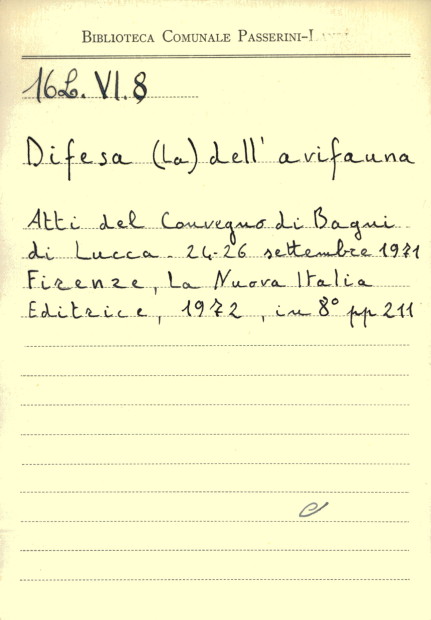 BIBLIOTECA COMUNALE PASSERINI-LANDI
16L. VI. 8
Difesa (La) dell'avifauna
Atti del Convegno di Bagni
di Lucca. 24-26 settembre 1971
Firenze, La Nuova Italia
Editrice, 1972, in 8° pp 211